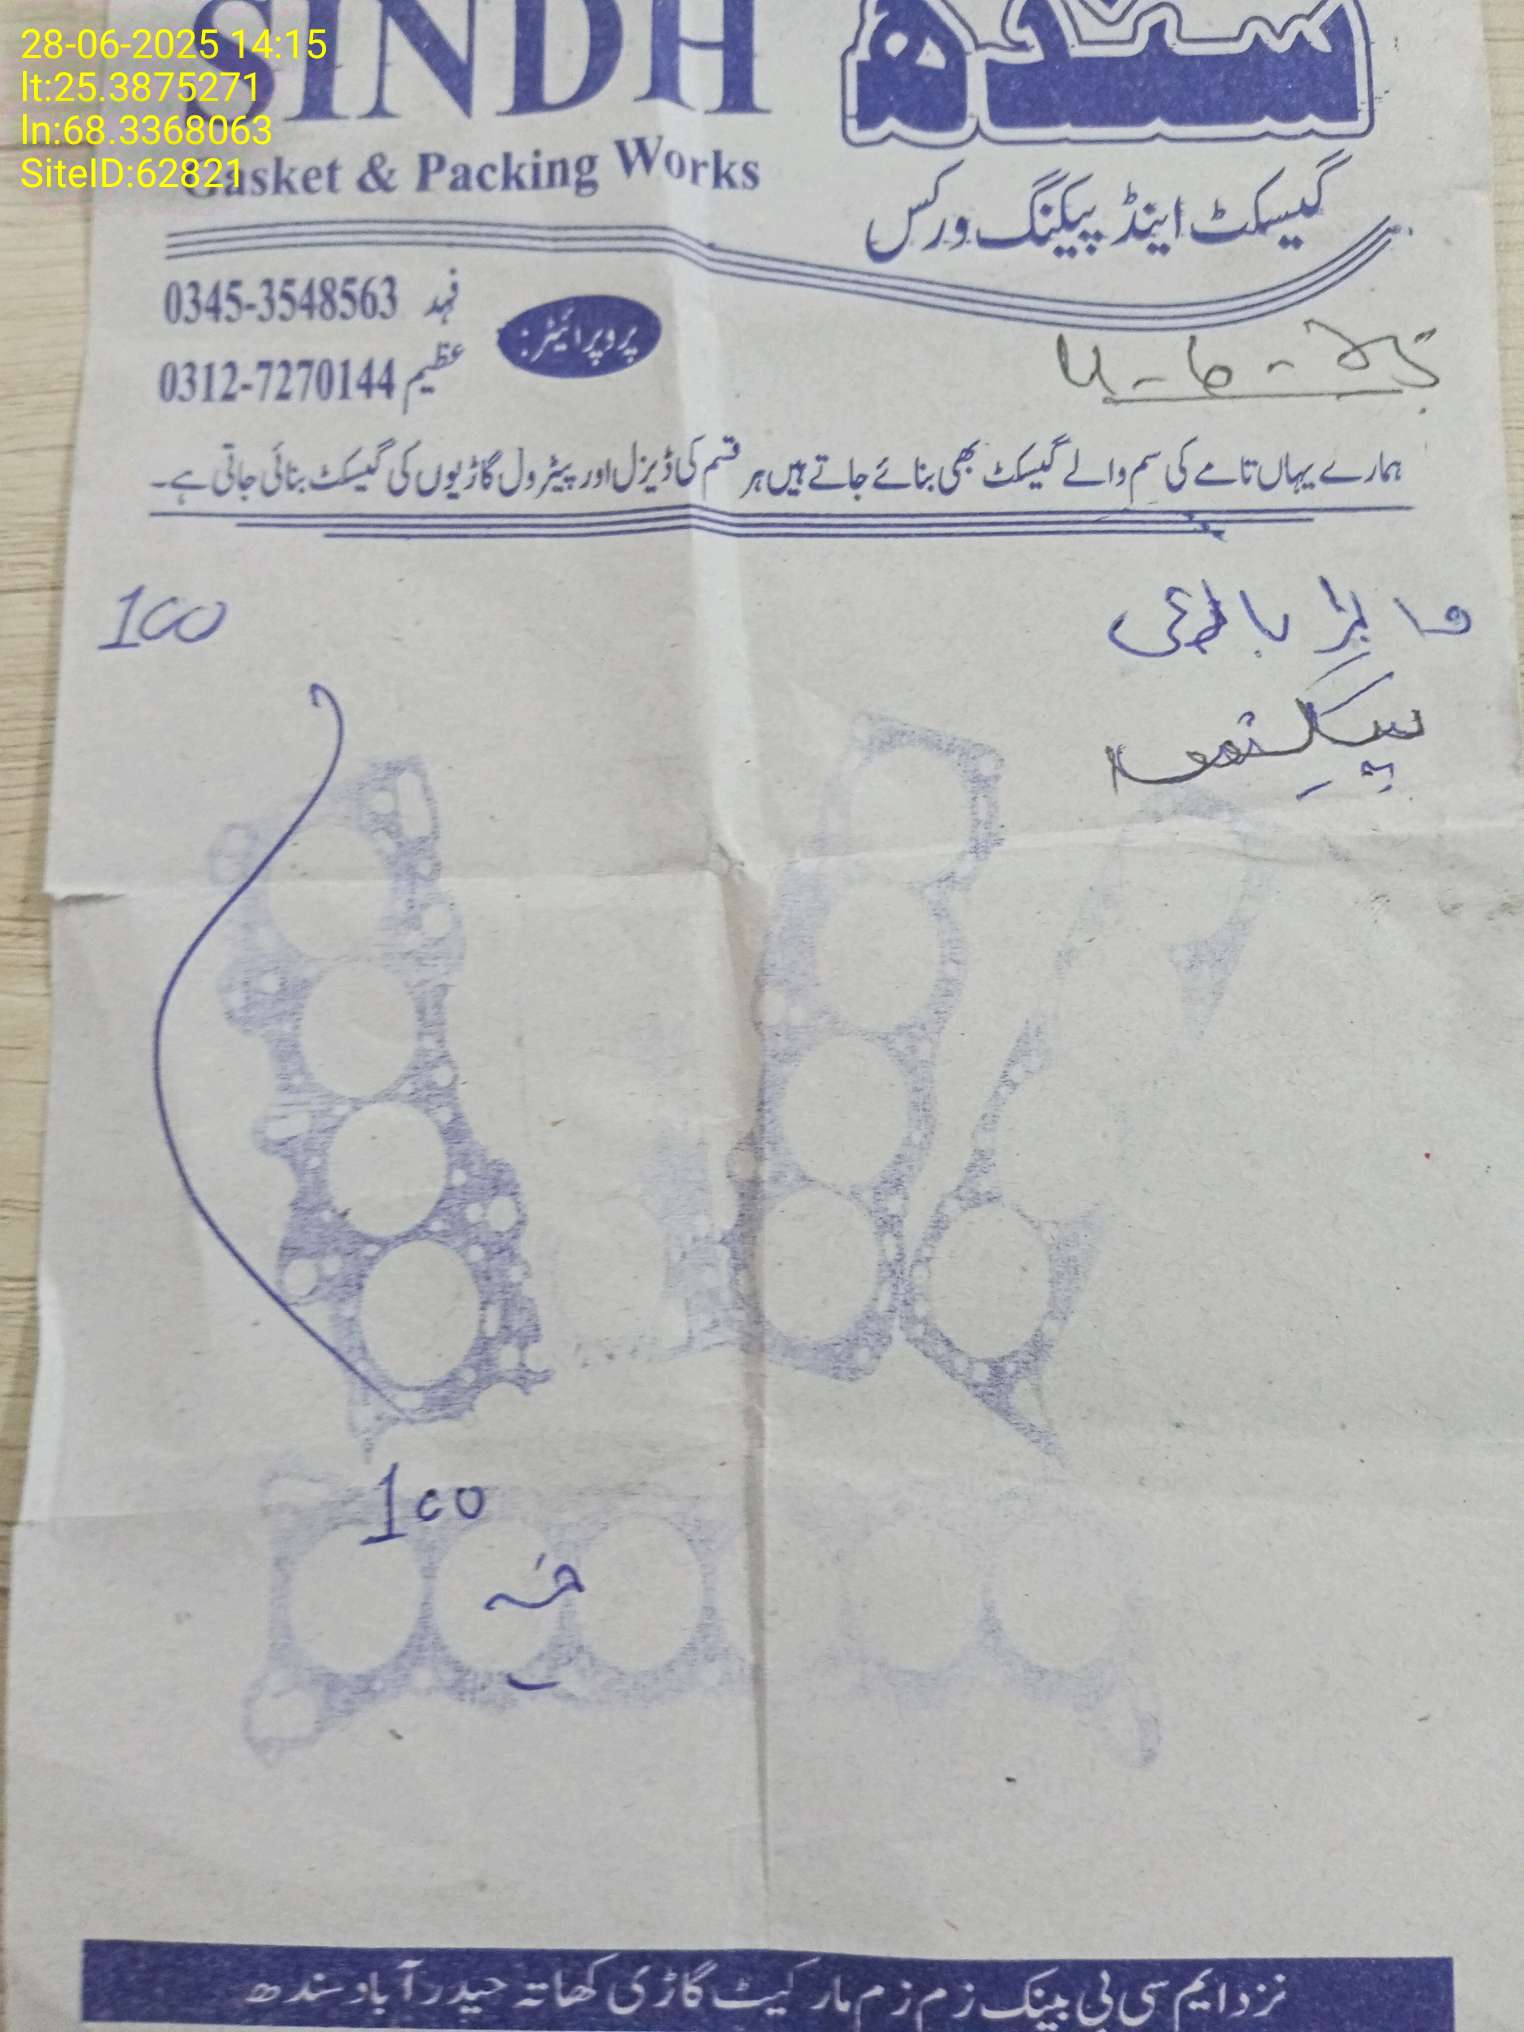 28-06-2025 14:15
lt:25.3875271
ln:68.3368063
SiteID:62821
SINDH
Gasket & Packing Works
سندھ
گیسکٹ اینڈ پیکنگ ورکس
پروپرائیٹر:
فہد 0345-3548563
عظیم 0312-7270144
ہمارے یہاں تامے کی سم والے گیسکٹ بھی بنائے جاتے ہیں ہر قسم کی ڈیزل اور پیٹرول گاڑیوں کی گیسکٹ بنائی جاتی ہے۔
100
100
نزد ایم سی بی بینک زم زم مارکیٹ گاڑی کھاتہ حیدرآباد سندھ